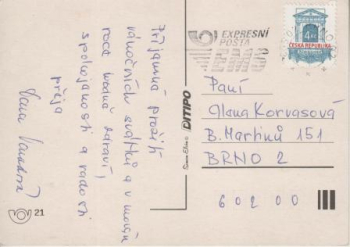 Příjemné prožití
vánočních svátků a v novém
roce hodně zdraví,
spokojenosti a radosti
přeje
21
DITIPO
EXPRESNÍ
POŠTA
EMS
ČESKÁ REPUBLIKA
Paní
Ilona Korvasová
B. Martinů 151
BRNO 2
60200